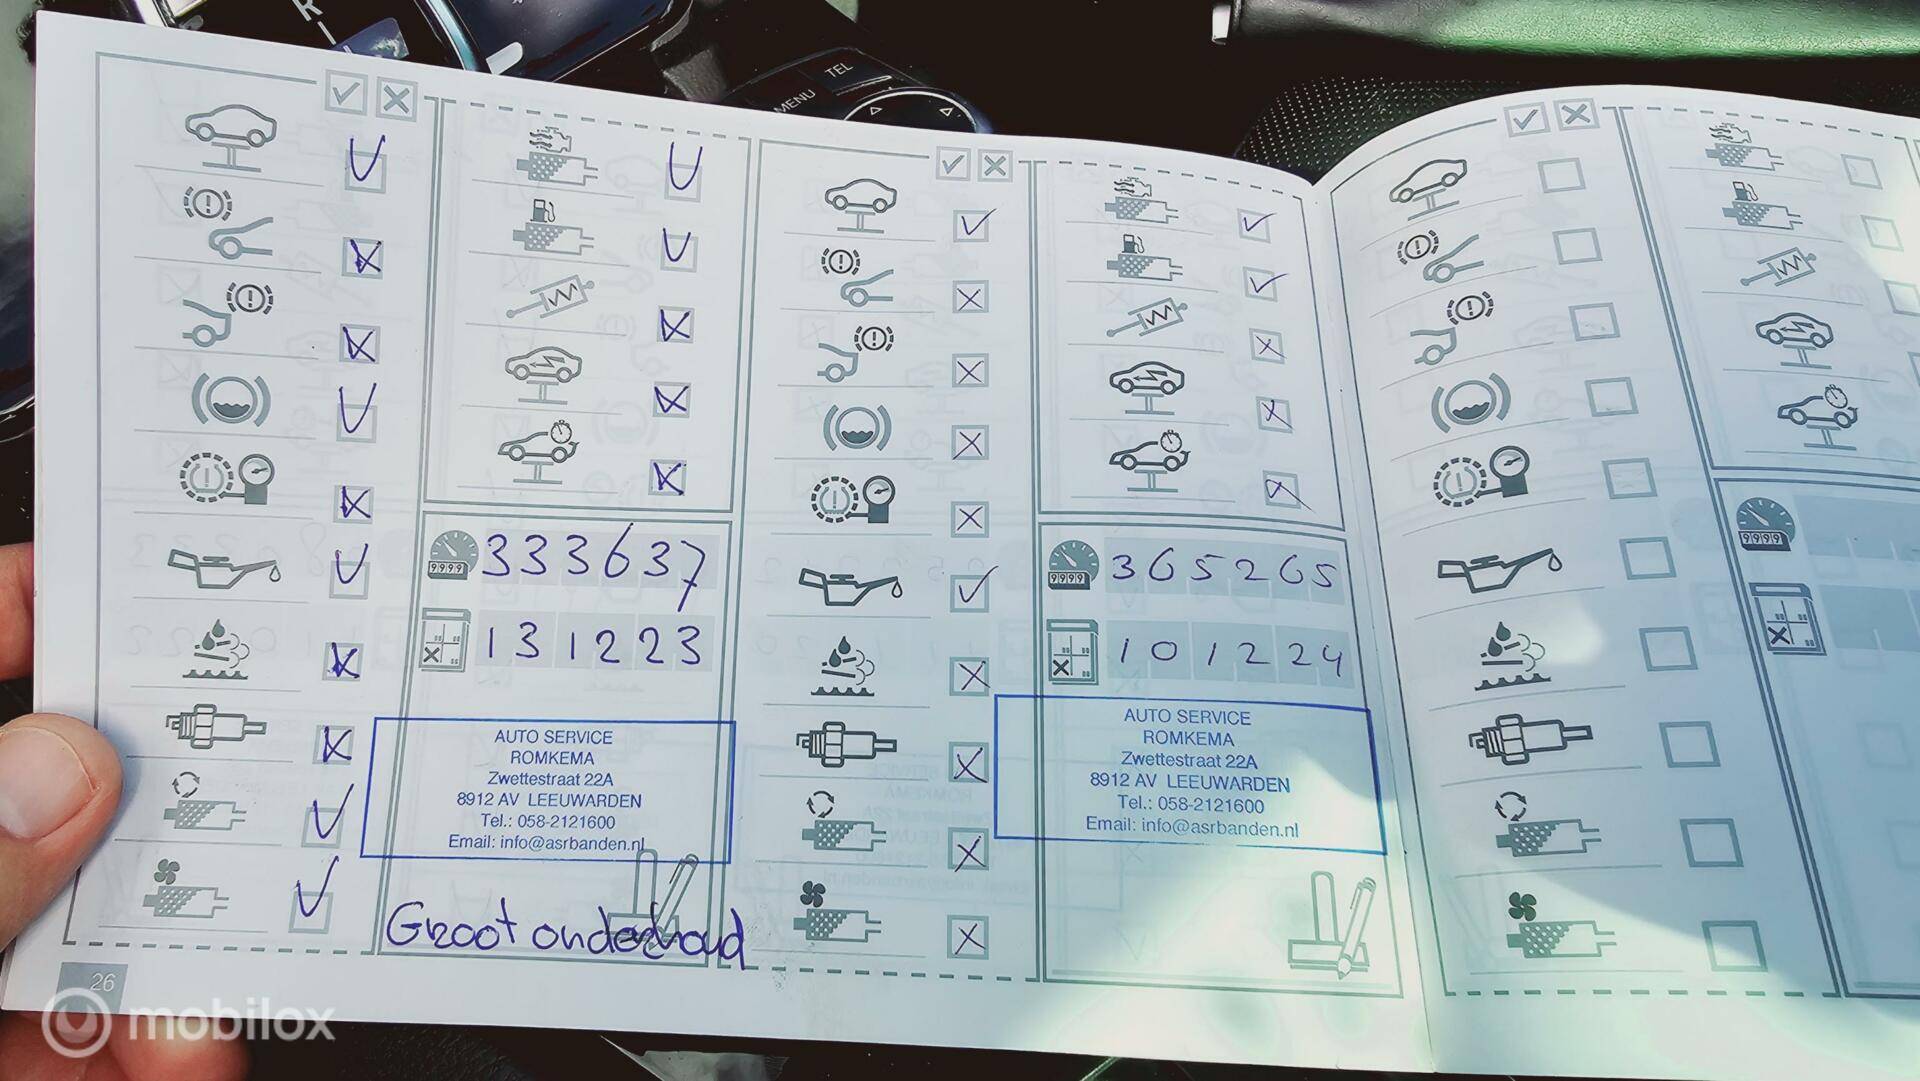 R
TEL
MENU
9999
333637
131223
AUTO SERVICE
ROMKEMA
Zwettestraat 22A
8912 AV LEEUWARDEN
Tel.: 058-2121600
Email: info@asrbanden.nl
Groot onderhoud
9999
365265
101224
AUTO SERVICE
ROMKEMA
Zwettestraat 22A
8912 AV LEEUWARDEN
Tel.: 058-2121600
Email: info@asrbanden.nl
9999
26
mobilox